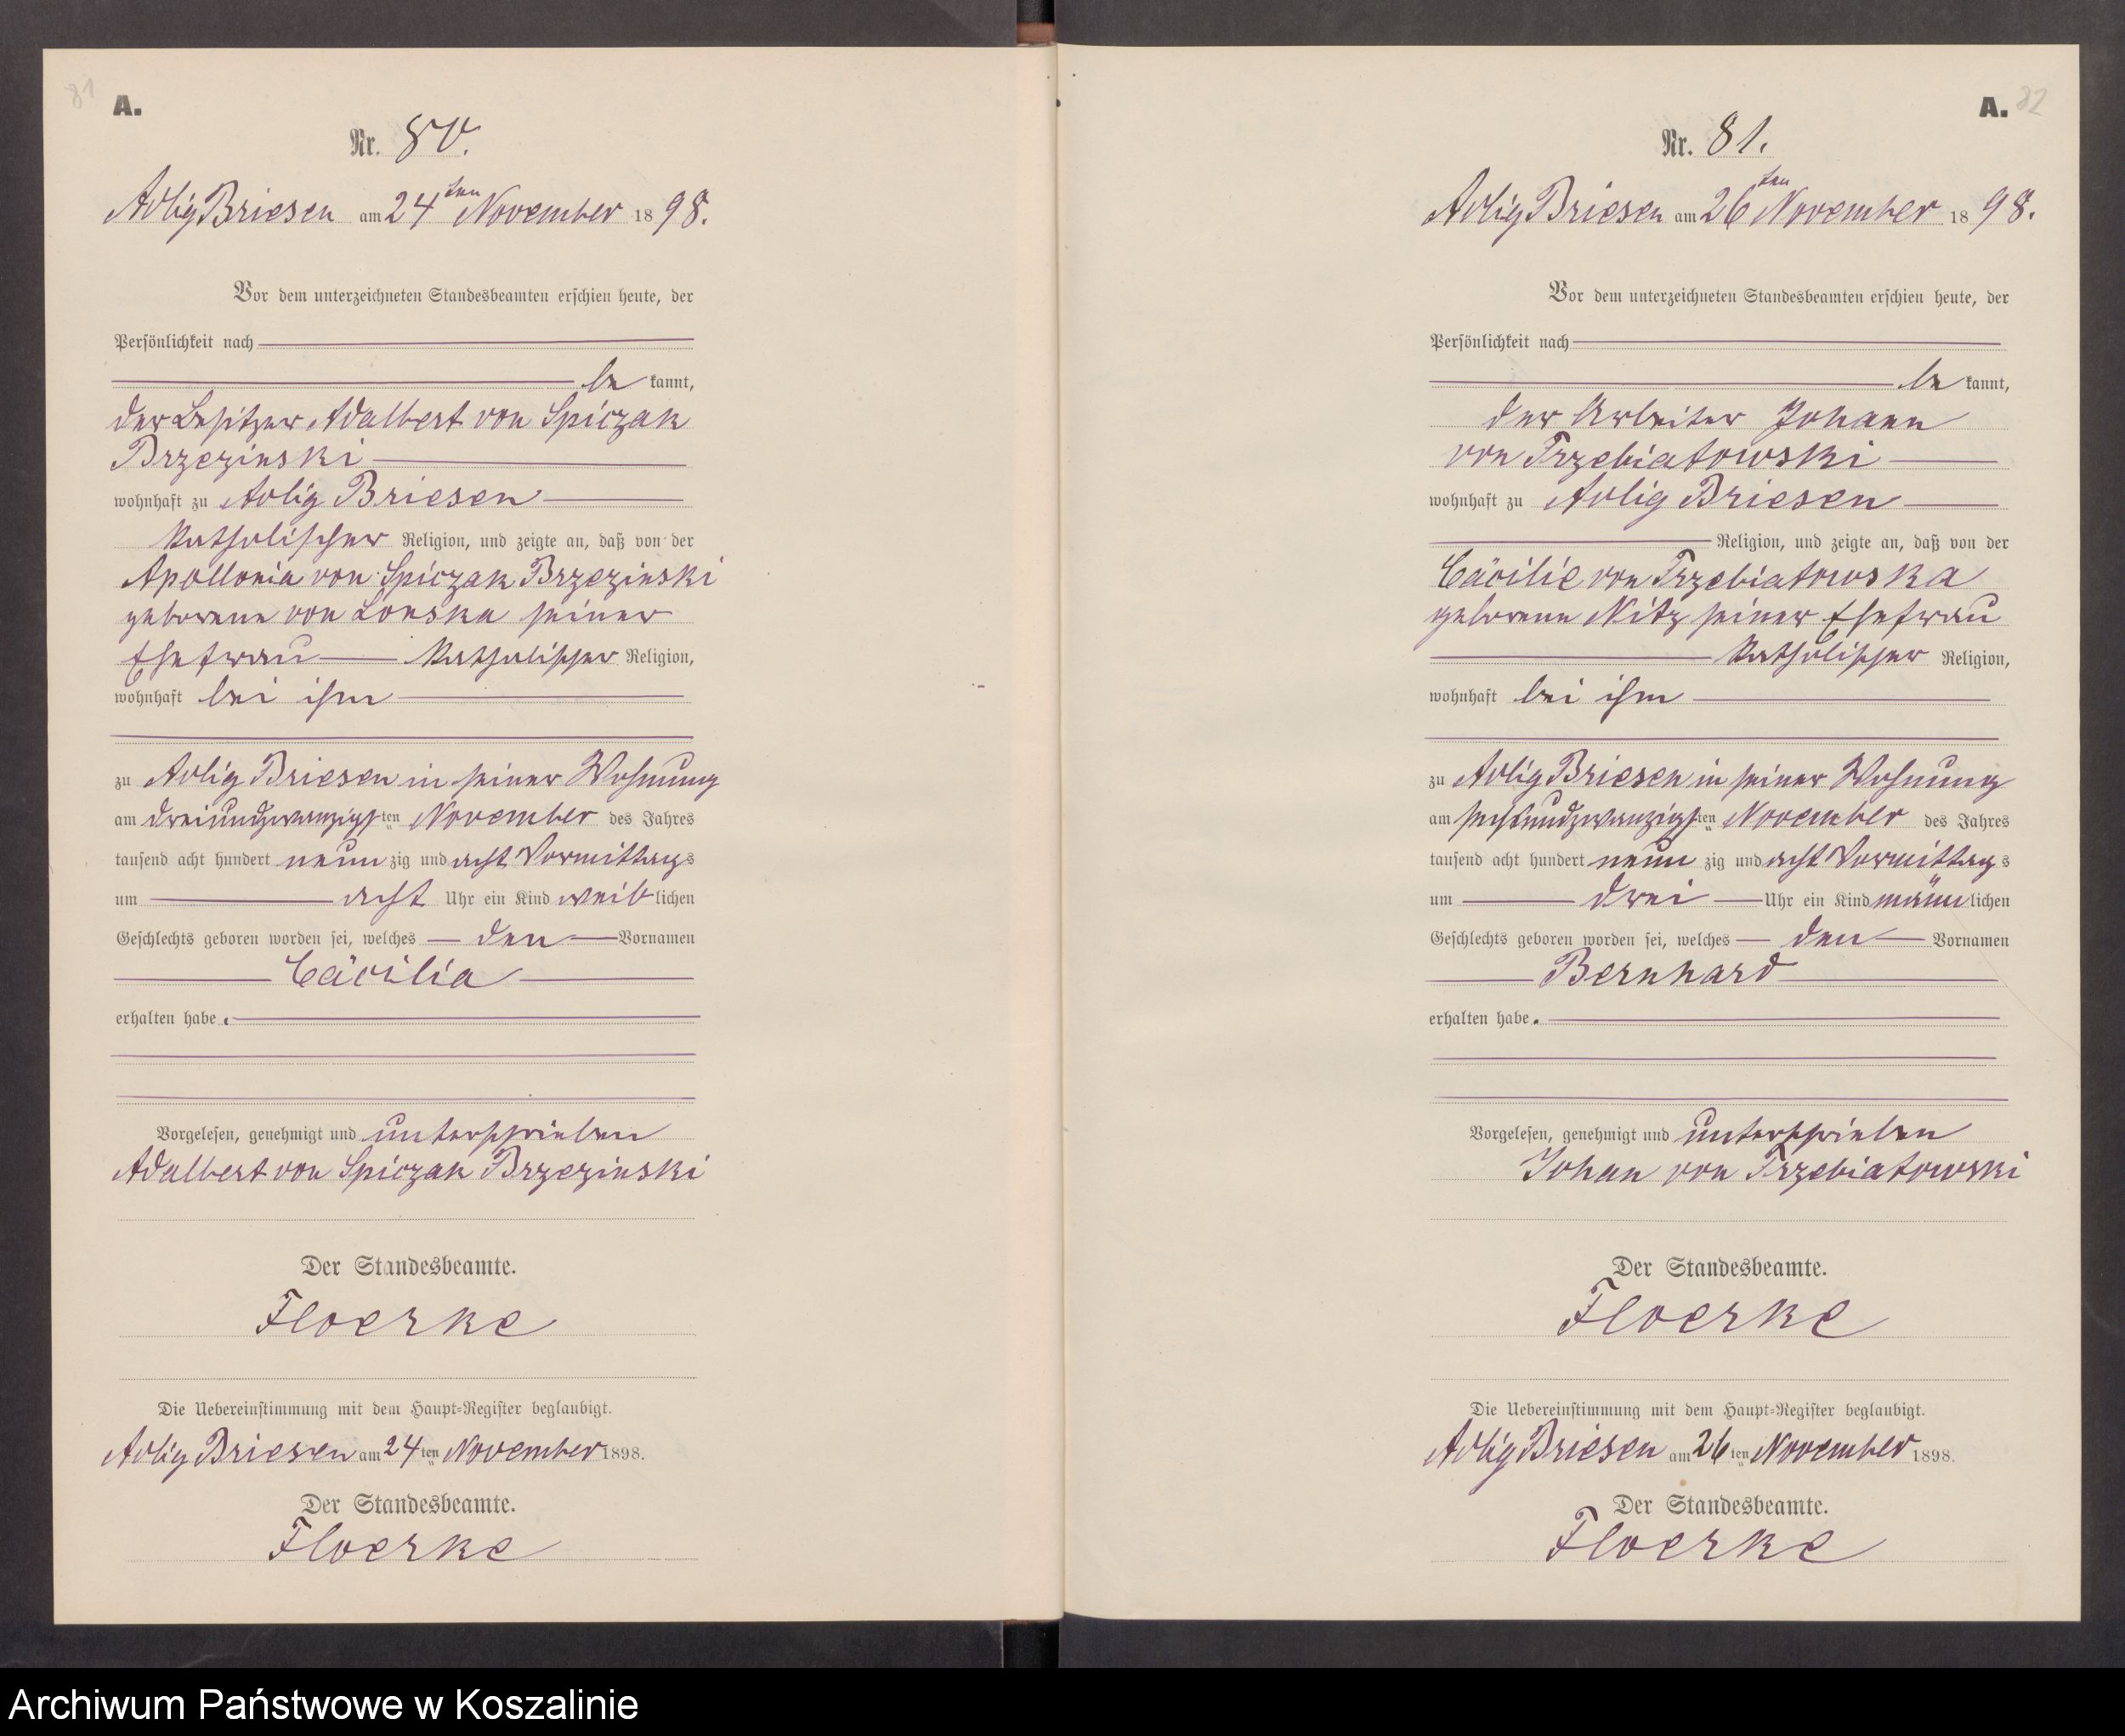 81
A.
Nr. 80.
Adlig Briesen am 24ten November 1898.
Vor dem unterzeichneten Standesbeamten erschien heute, der
Persönlichkeit nach
be kannt,
der Besitzer Adalbert von Spiczak
Brzezinski
wohnhaft zu Adlig Briesen
katholischer Religion, und zeigte an, daß von der
Apollonia von Spiczak Brzezinski
geborene von Lonska seiner
Ehefrau katholischer Religion,
wohnhaft bei ihm
zu Adlig Briesen in seiner Wohnung
am dreiundzwanzigsten November des Jahres
tausend acht hundert neun zig und acht Vormittags
um acht Uhr ein Kind weiblichen
Geschlechts geboren worden sei, welches den Vornamen
Cäcilia
erhalten habe.
Vorgelesen, genehmigt und unterschrieben
Adalbert von Spiczak Brzezinski
Der Standesbeamte.
Floerke
Die Uebereinstimmung mit dem Haupt-Register beglaubigt.
Adlig Briesen am 24ten November 1898.
Der Standesbeamte.
Floerke
A. 82
Nr. 81.
Adlig Briesen am 26ten November 1898.
Vor dem unterzeichneten Standesbeamten erschien heute, der
Persönlichkeit nach
be kannt,
der Arbeiter Johann
von Trzebiatowski
wohnhaft zu Adlig Briesen
Religion, und zeigte an, daß von der
Cäcilie von Trzebiatowska
geborene Nitz seiner Ehefrau
katholischer Religion,
wohnhaft bei ihm
zu Adlig Briesen in seiner Wohnung
am sechsundzwanzigsten November des Jahres
tausend acht hundert neun zig und acht Vormittags
um drei Uhr ein Kind männlichen
Geschlechts geboren worden sei, welches den Vornamen
Bernhard
erhalten habe.
Vorgelesen, genehmigt und unterschrieben
Johan von Trzebiatowski
Der Standesbeamte.
Floerke
Die Uebereinstimmung mit dem Haupt-Register beglaubigt.
Adlig Briesen am 26ten November 1898.
Der Standesbeamte.
Floerke
Archiwum Państwowe w Koszalinie